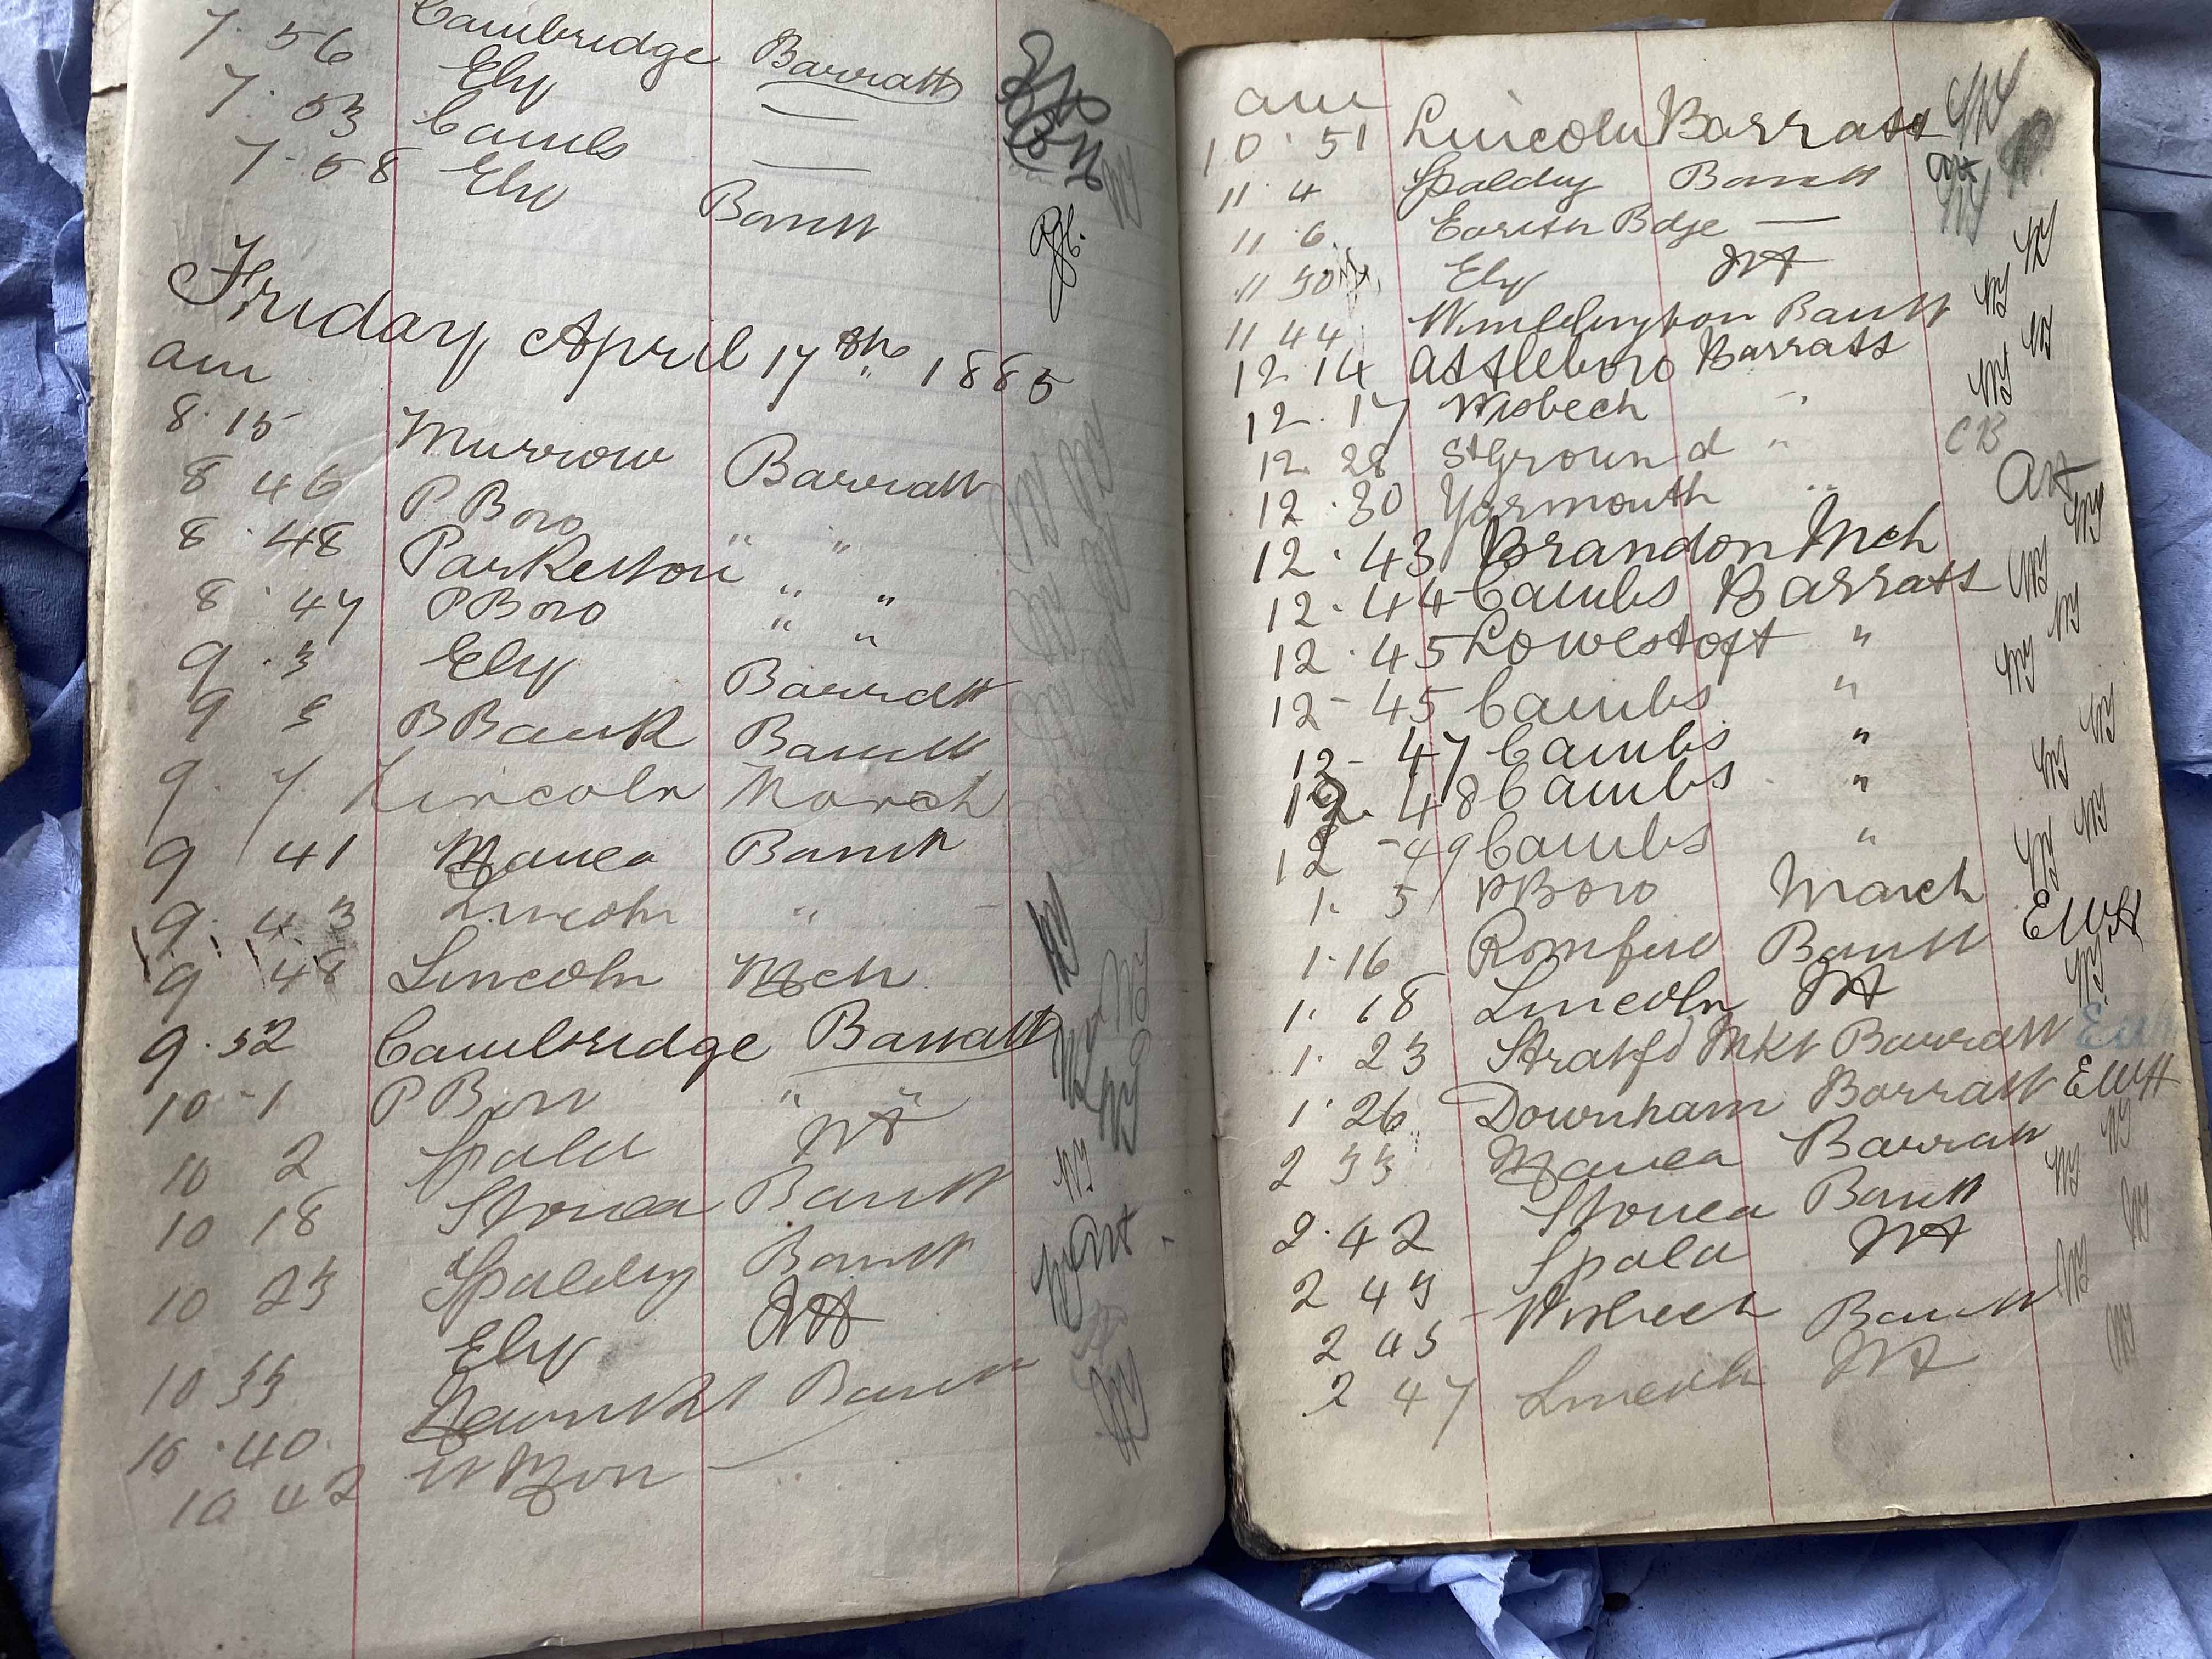 7. 56 Cambridge Barratt
7. 53 Ely —
7. 58 Cambs —
Ely Barratt
Friday April 17th 1885
am
8. 15 Murrow Barratt
8 46 P Boro " "
8. 48 Parkeston " "
8. 47 P Boro " "
9. 3 Ely Barratt
9 5 B Bank Barratt
9. 7 Lincoln March
9 41 Manea Barratt
9. 43 Lincoln "
9 48 Lincoln Mch
9. 52 Cambridge Barratt
10 - 1 P Boro " "
10 2 Spald
10 18 Stonea Barratt
10 23 Spaldg Barratt
10 33 Ely
10. 40 Newmkt Barratt
10 42
am
10. 51 Lincoln Barratt
11. 4 Spaldg Barratt
11 6. Earith Bdge —
11 30 Ely
11 44 Wimblington Barratt
12 14 Attleboro Barratt
12. 17 Wisbech "
12. 28 St Ground " CB
12. 30 Yarmouth "
12. 43 Brandon Mch
12. 44 Cambs Barratt
12. 45 Lowestoft "
12 - 45 Cambs "
12 - 47 Cambs "
12. 48 Cambs "
12 - 49 Cambs "
1. 5 P Boro March
1. 16 Romford Barratt EWH
1. 18 Lincoln
1. 23 Stratfd Mkt Barratt
1. 26 Downham Barratt EWH
2 33 Manea Barratt
2. 42 Stonea Barratt
2 43 Spald
2 45 Wisbech Barratt
2 47 Lincoln